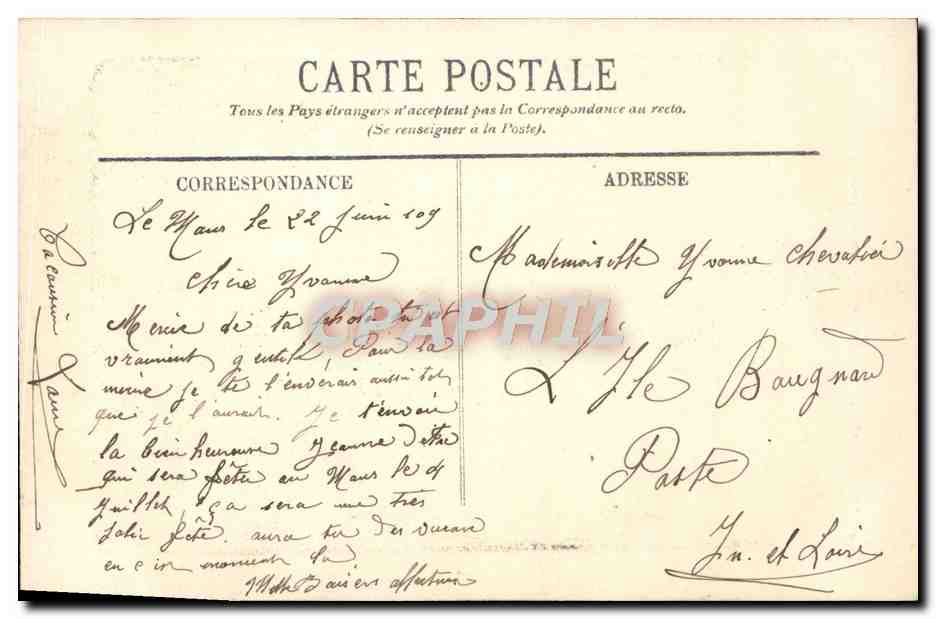 CARTE POSTALE
Tous les Pays étrangers n'acceptent pas la Correspondance au recto.
(Se renseigner à la Poste).
CORRESPONDANCE
Le Mans le 22 Juin 109
Chère Yvonne
Mercie de ta photo tu et
vraiment gentil, Pour la
mienne je te l'enverais aussitot
que je l'aurais. Je t'envoie
la bien heureuse Jeanne
qui sera fêter au Mans le 4
Juillet, ça sera une très
jolie fête. aura tu des vacance
en ce moment la
Mille Baisers affectueux
Ta cousine
ADRESSE
Mademoiselle Yvonne Chevalier
L'Ile Bougnard
Poste
In. et Loire
CPAPHIL